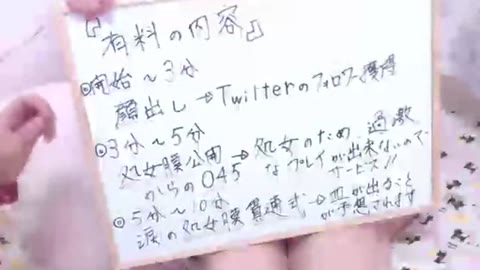 『有料の内容』
◎開始～3分
顔出し→Twitterのフォロワー獲得
◎3分～5分
処女膜公開→処女のため、過激
からの045 なプレイが出来ないので
サービス!!
◎5分～10分
涙の処女膜貫通式→血が出ること
が予想されます